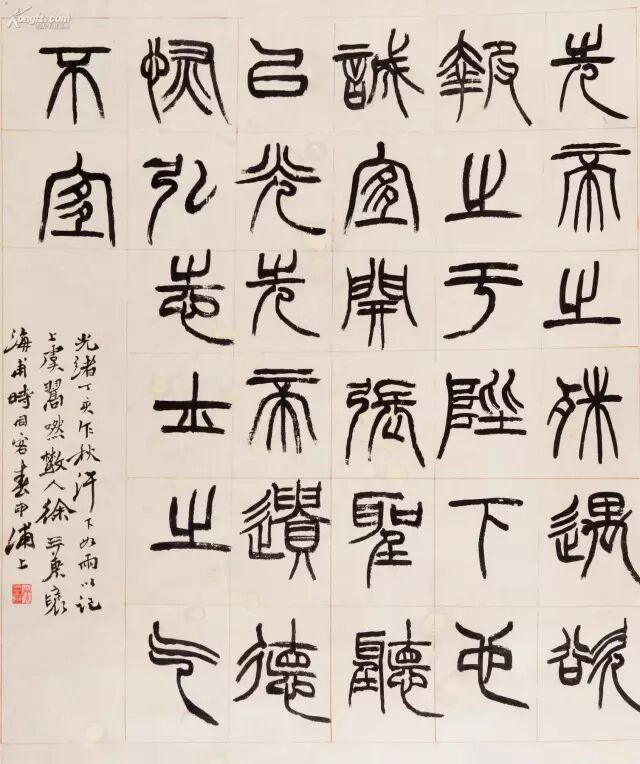 先帝之殊遇欲
報之于陛下也
誠宜開張聖聽
㠯光先帝遺德
恢弘志士之气
不宜
光緒丁亥乍秋汗下如雨以記
上虞翯嘫散人徐三庚褎
海甫時同客春申浦上
Kongfz.com